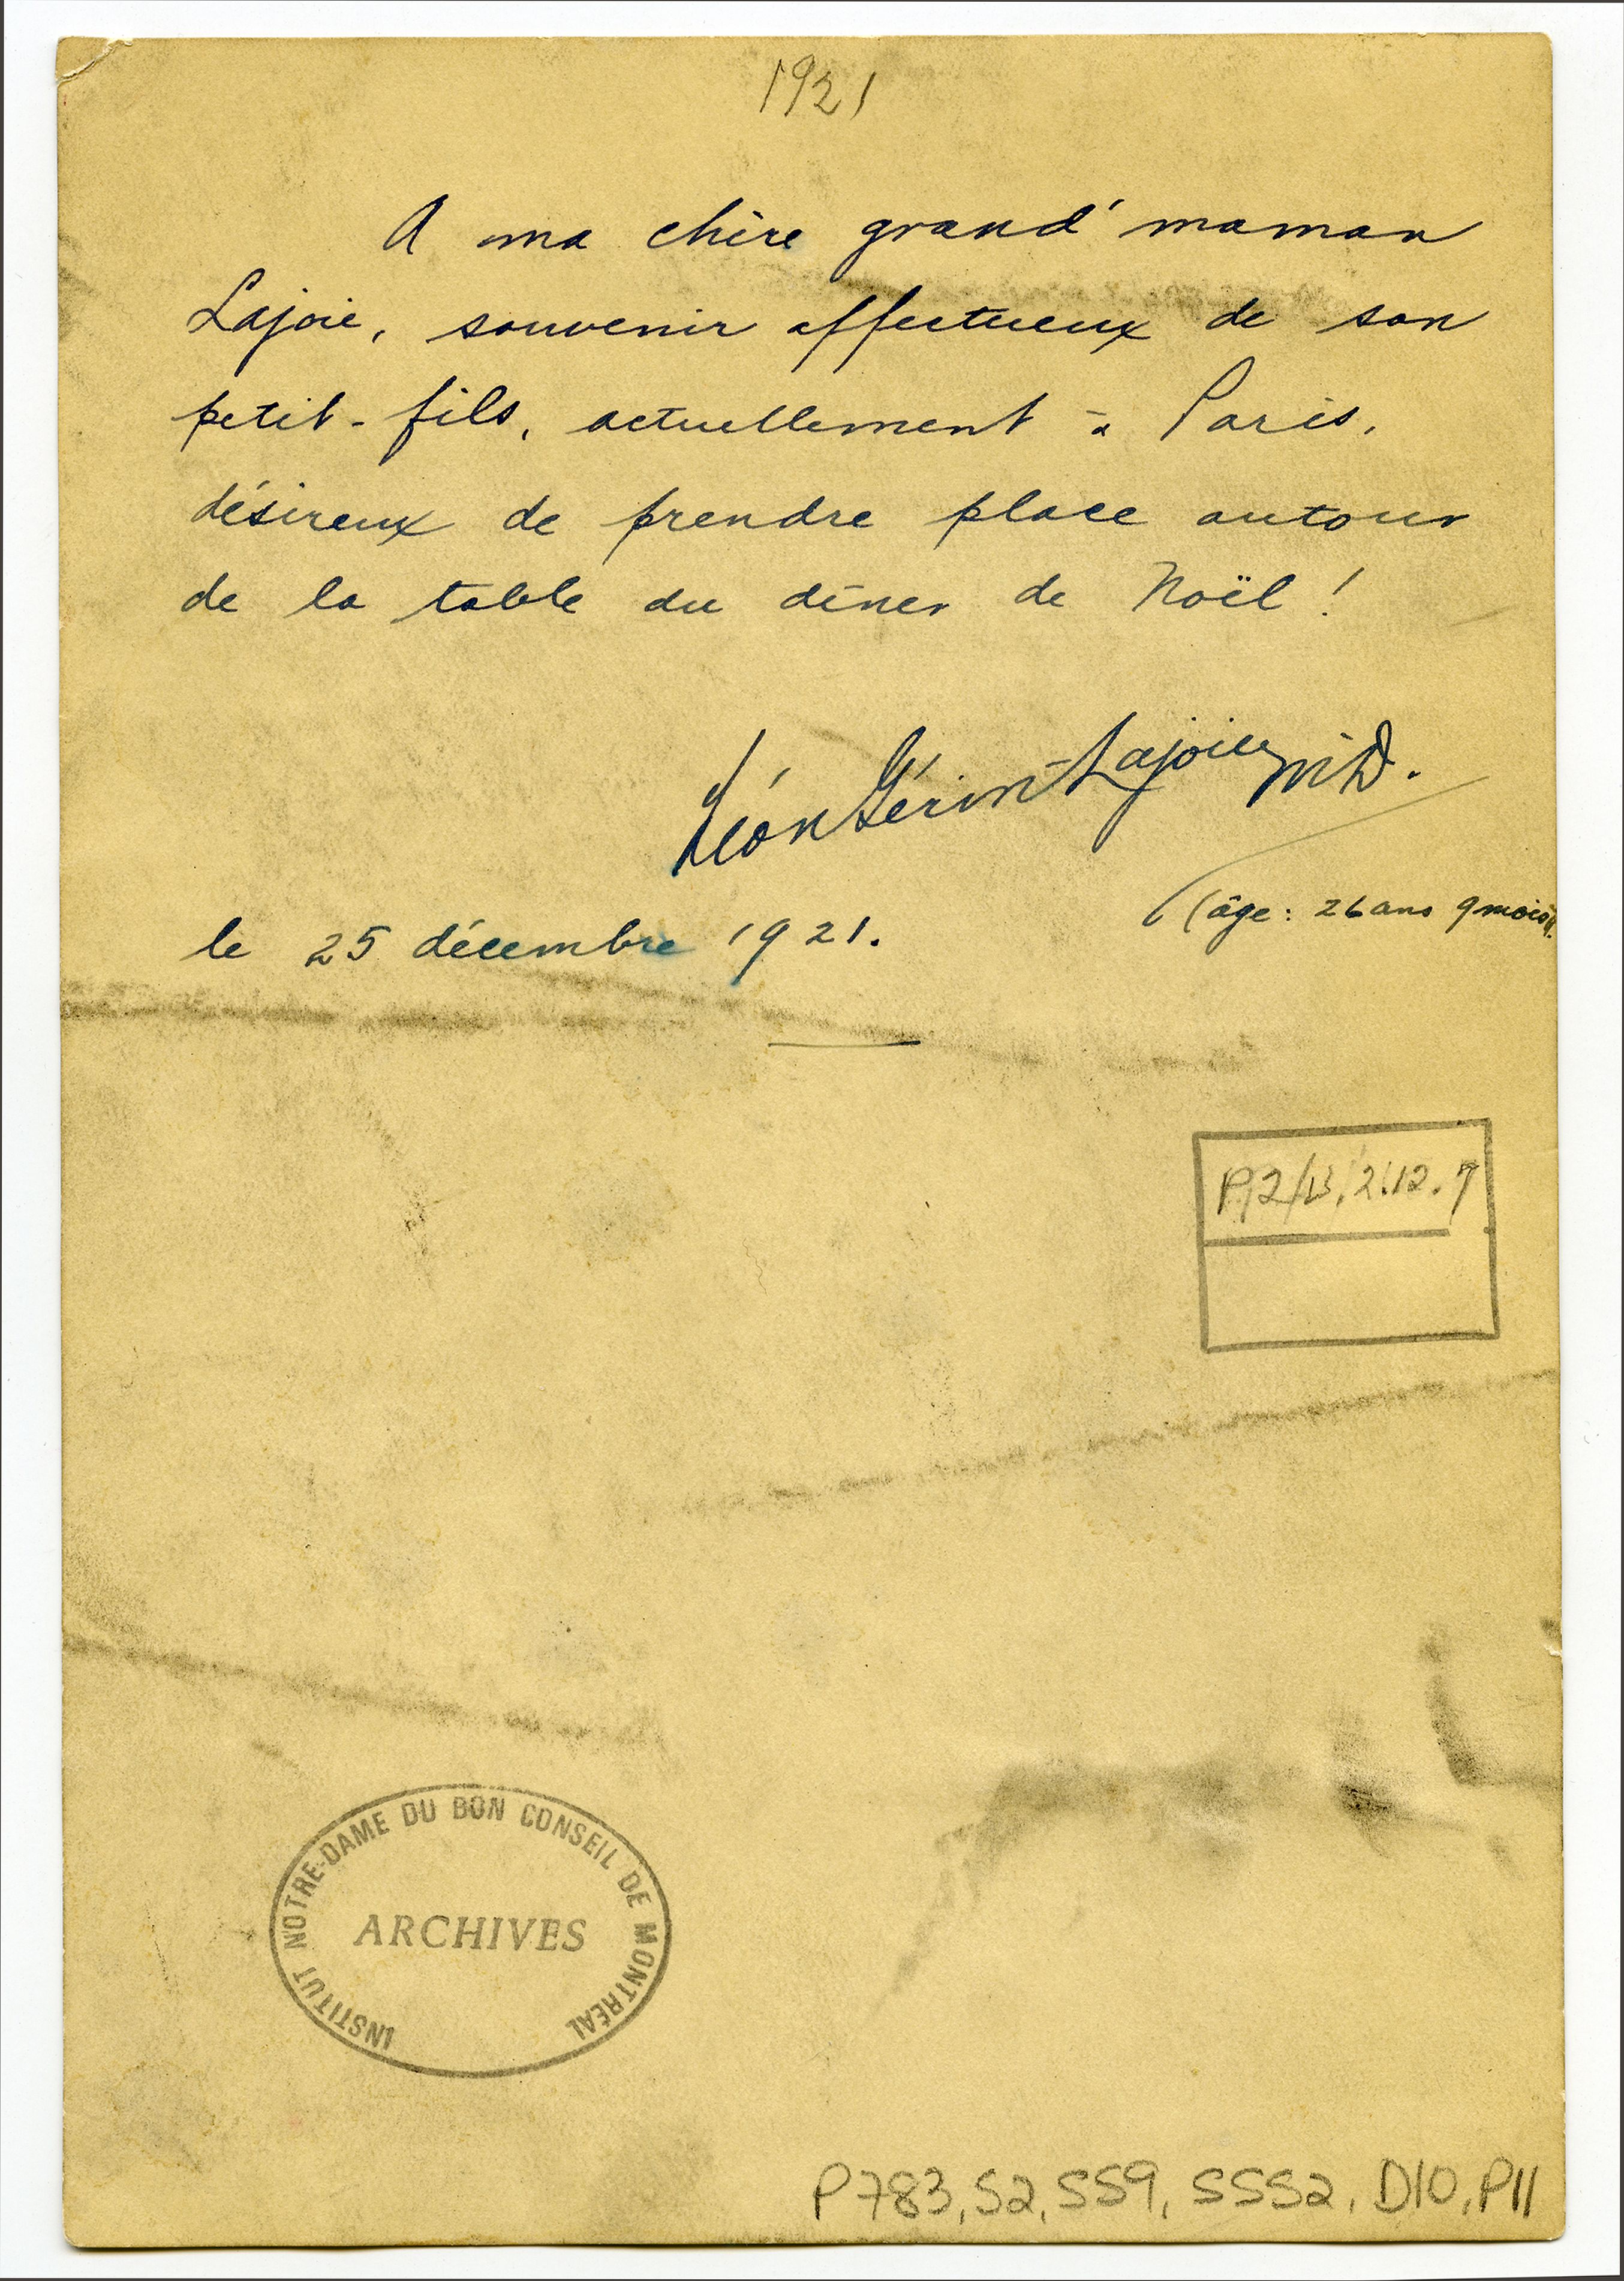 1921
A ma chère grand'maman
Lajoie, souvenir affectueux de son
petit-fils, actuellement à Paris,
désireux de prendre place autour
de la table du dîner de Noël !
Léon Gérin-Lajoie, M.D.
(âge : 26 ans 9 mois).
le 25 décembre 1921.
P2/B,2.12.7
INSTITUT NOTRE-DAME DU BON CONSEIL DE MONTRÉAL
ARCHIVES
P783, S2, SS9, SSS2, D10, P11